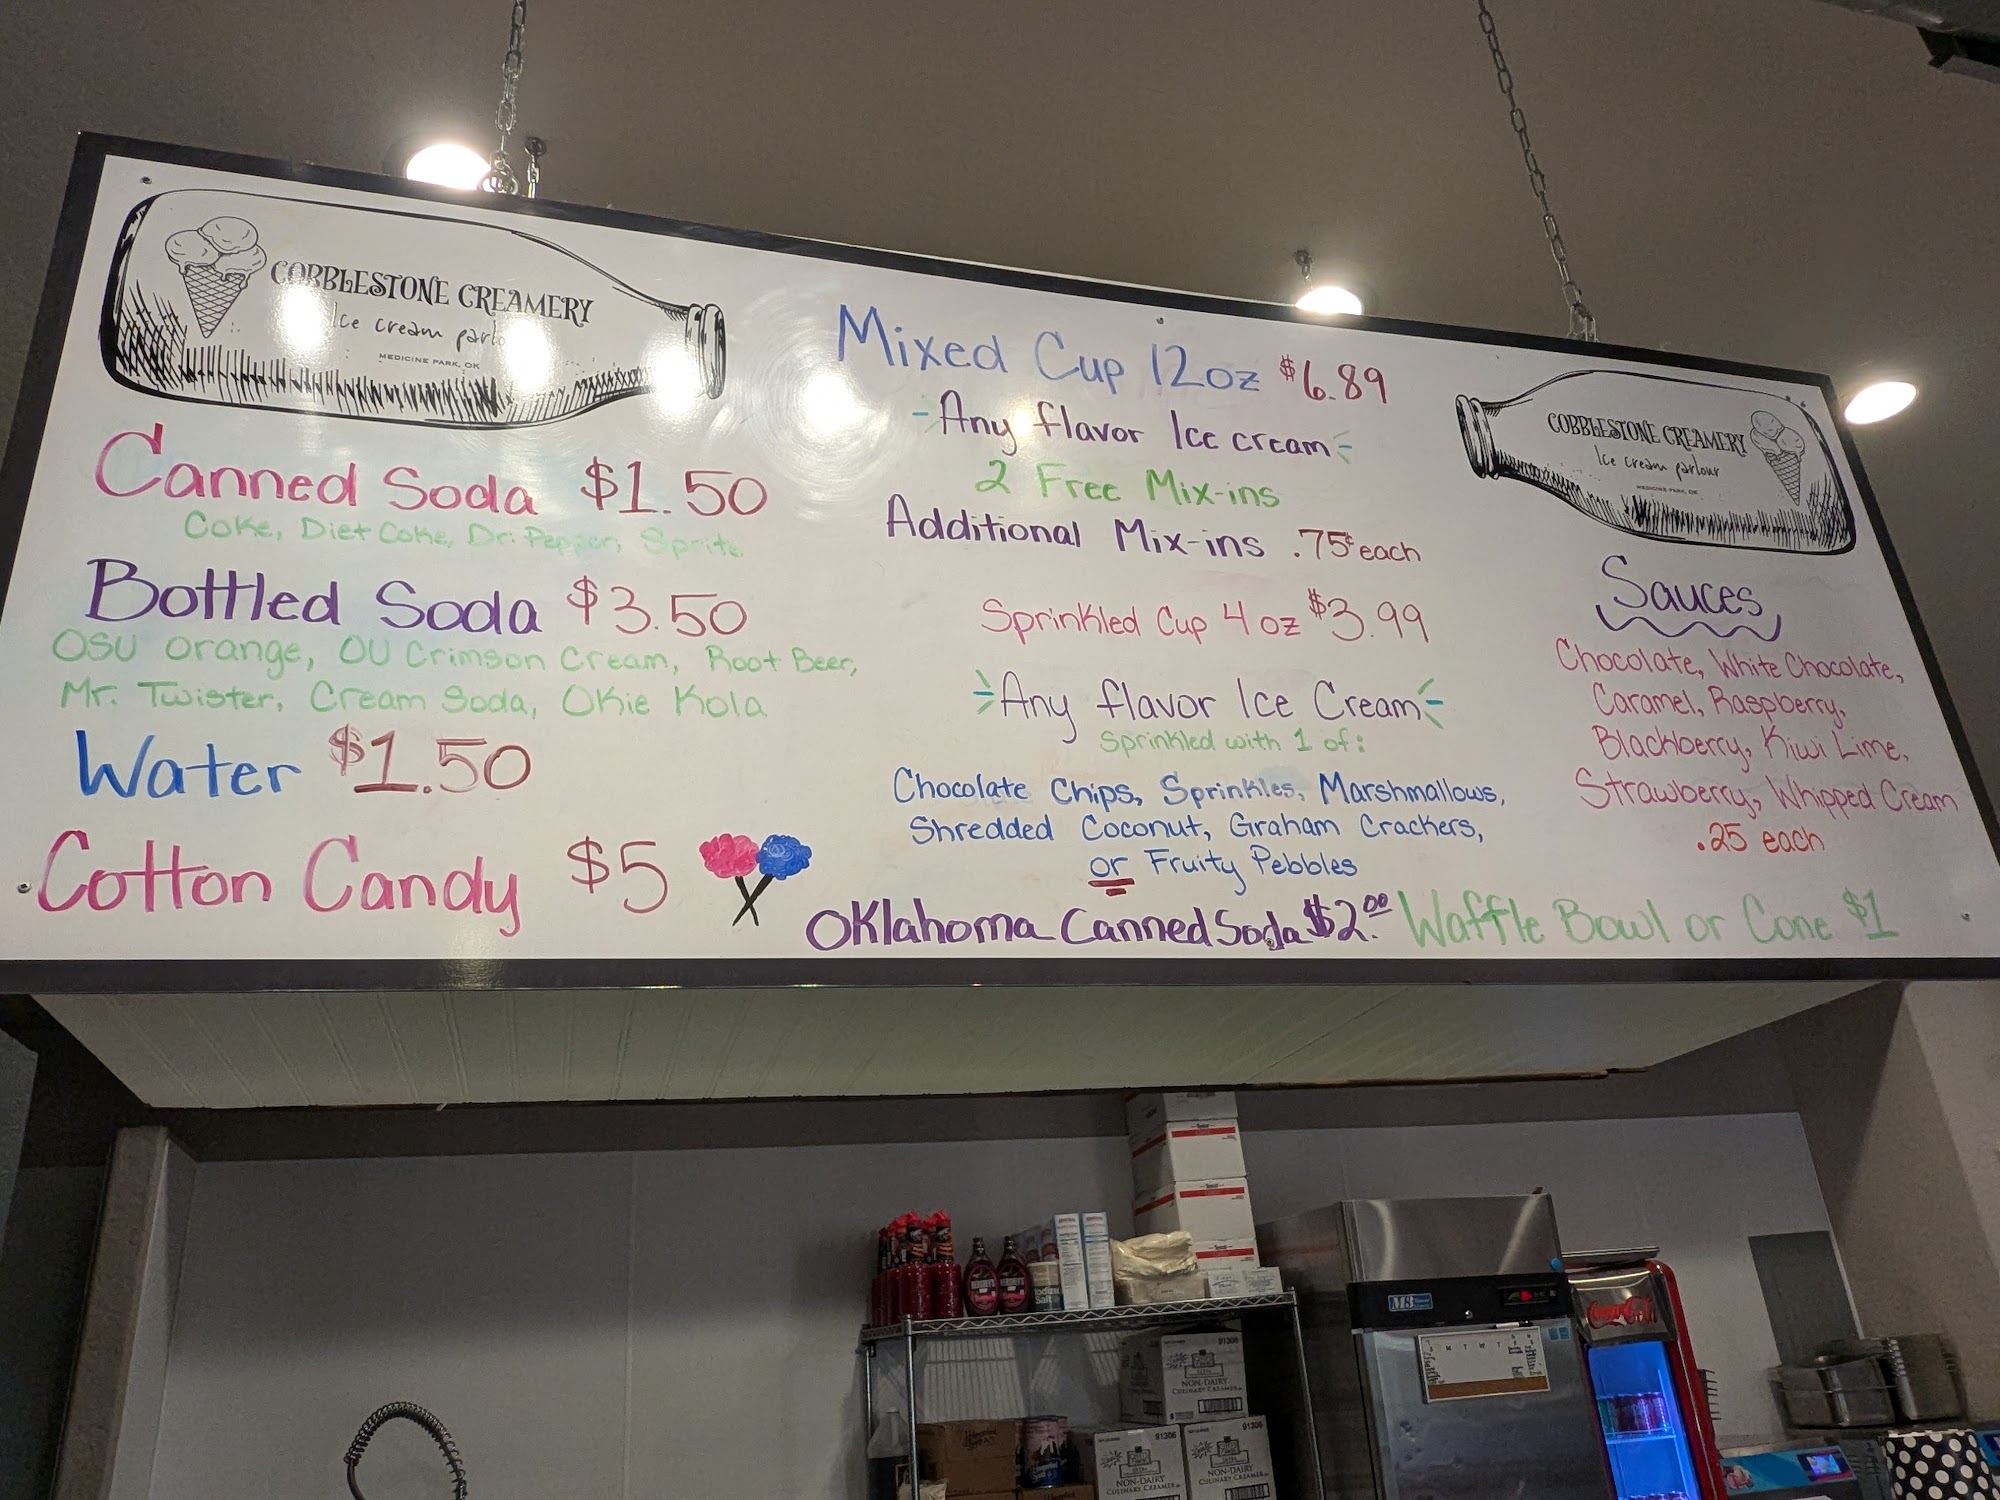 COBBLESTONE CREAMERY
Ice cream parlo
MEDICINE PARK, OK
Canned Soda $1.50
Coke, Diet Coke, Dr. Pepper, Sprite
Bottled Soda $3.50
OSU Orange, OU Crimson Cream, Root Beer,
Mr. Twister, Cream Soda, Okie Kola
Water $1.50
Cotton Candy $5
Mixed Cup 12oz $6.89
-Any flavor Ice cream-
2 Free Mix-ins
Additional Mix-ins .75¢ each
Sprinkled Cup 4oz $3.99
Any flavor Ice Cream
Sprinkled with 1 of:
Chocolate Chips, Sprinkles, Marshmallows,
Shredded Coconut, Graham Crackers,
or Fruity Pebbles
Oklahoma Canned Soda $2.00
COBBLESTONE CREAMERY
Ice cream parlour
MEDICINE PARK, OK
Sauces
Chocolate, White Chocolate,
Caramel, Raspberry,
Blackberry, Kiwi Lime,
Strawberry, Whipped Cream
.25 each
Waffle Bowl or Cone $1
HERSHEY'S
Iodized
Salt
91306
NON-DAIRY
CULINARY CREAMER
91306
NON-DAIRY
CULINARY CREAMER
91306
NON-DAIRY
CULINARY CREAMER
Coca-Cola